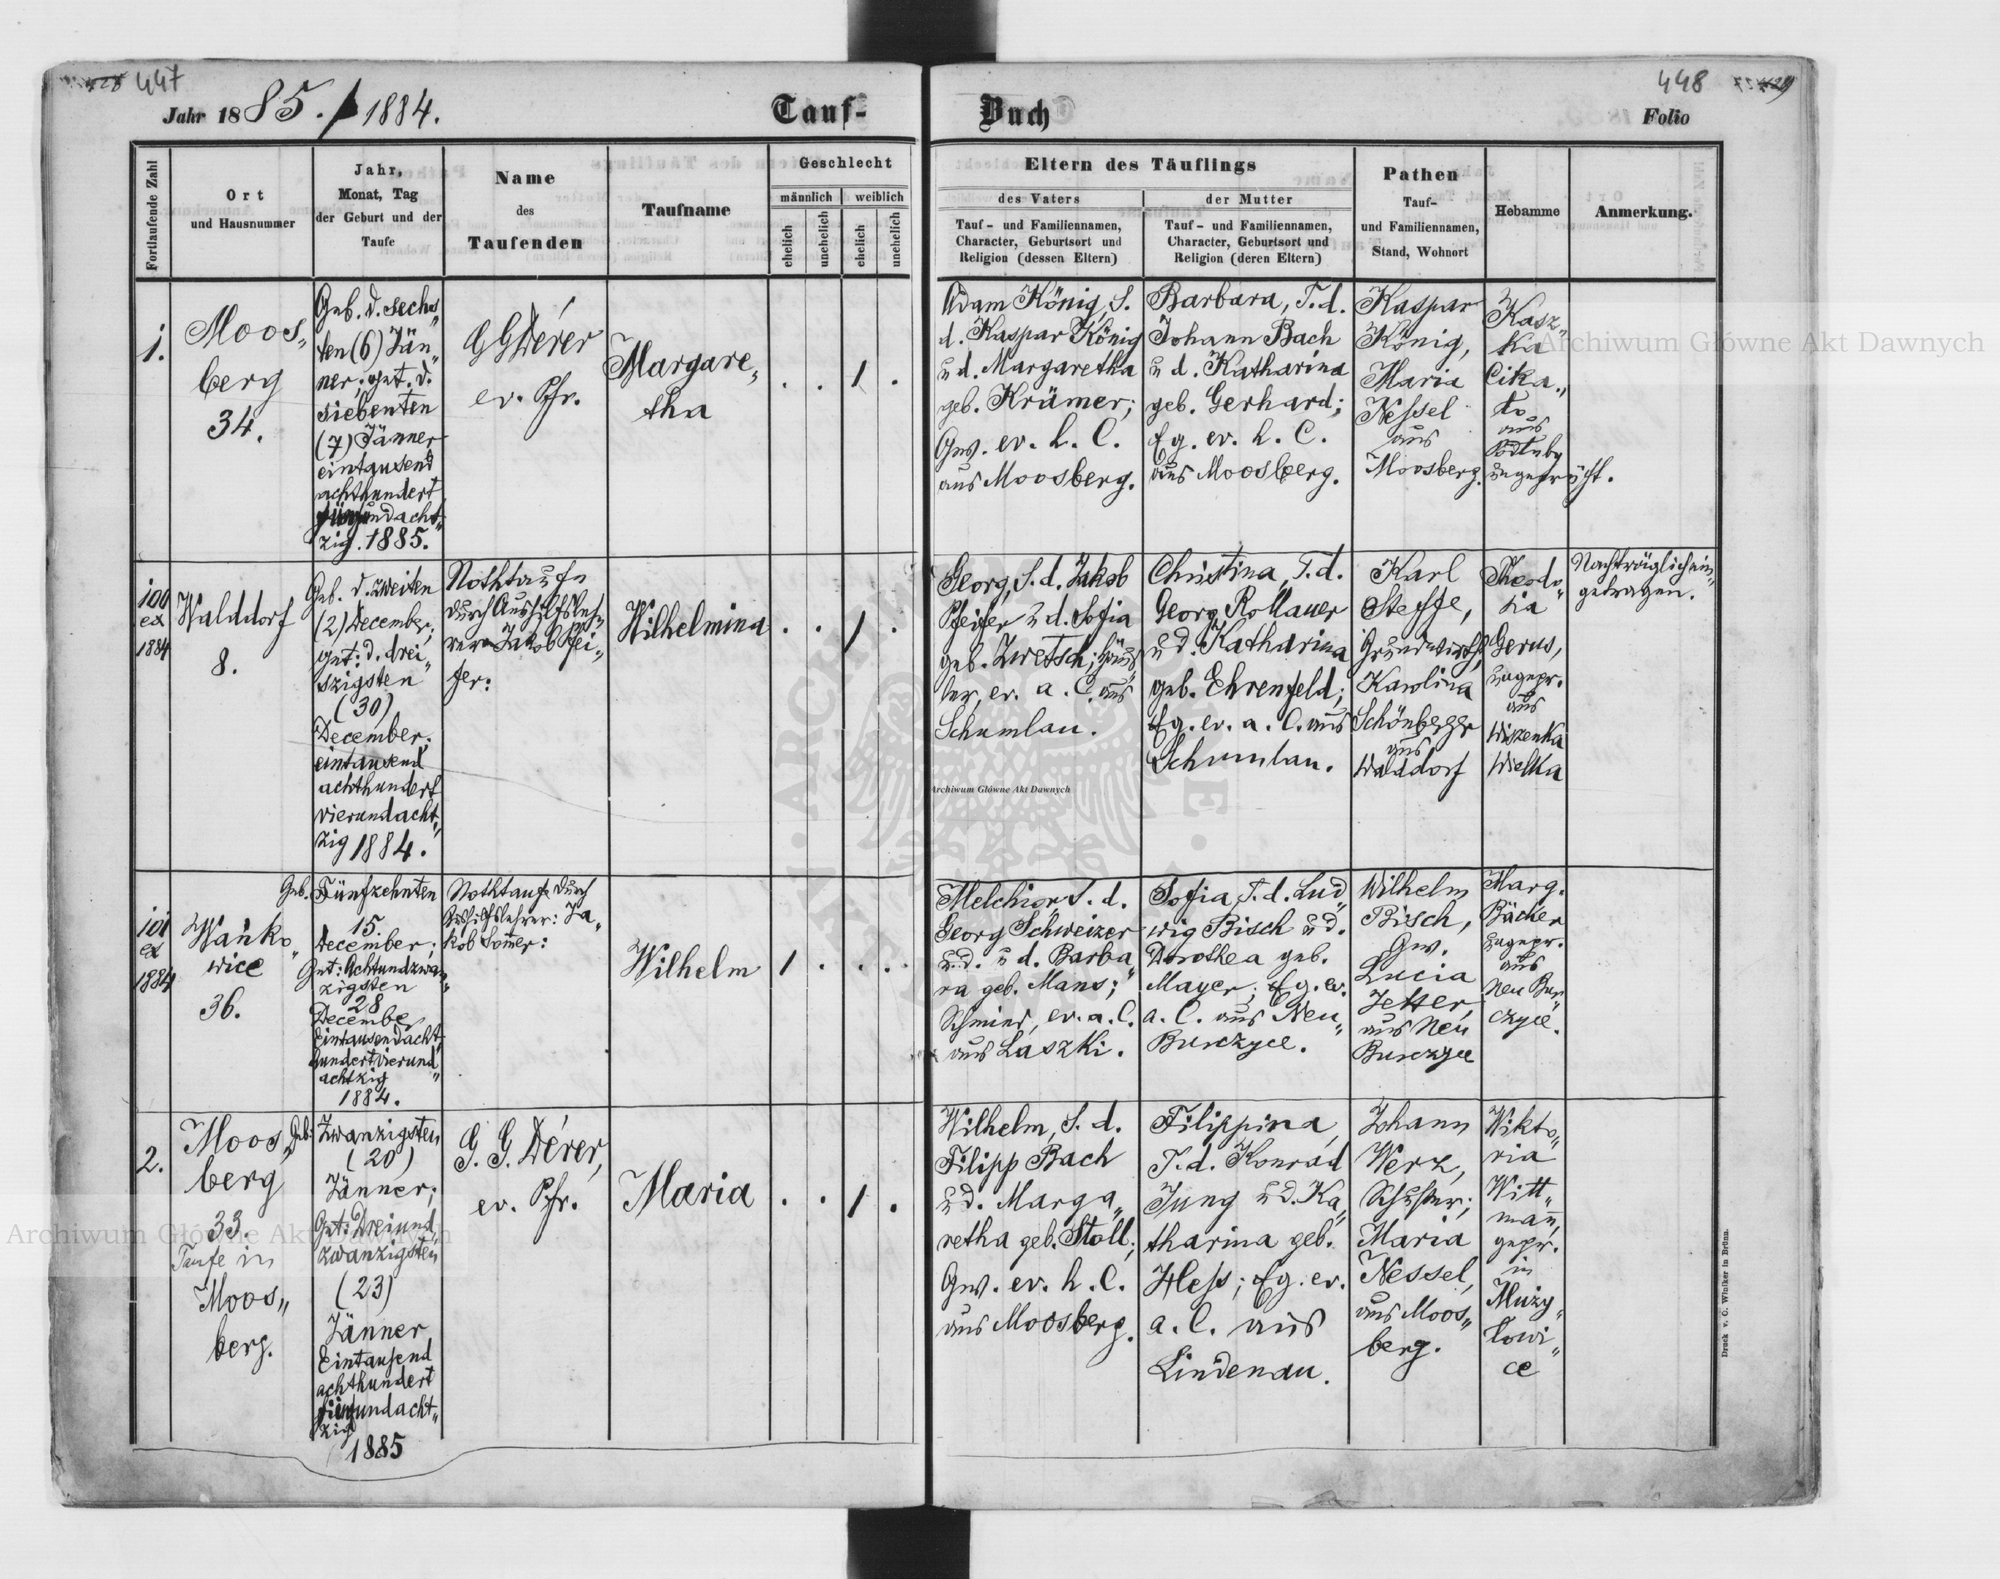 447
448
Jahr 1885. / 1884.
Tauf-
Buch
Folio
Fortlaufende Zahl
Ort
und Hausnummer
Jahr,
Monat, Tag
der Geburt und der
Taufe
Name
des
Taufenden
Taufname
Geschlecht
männlich
weiblich
ehelich
unehelich
ehelich
unehelich
Eltern des Täuflings
des Vaters
Tauf- und Familiennamen,
Character, Geburtsort und
Religion (dessen Eltern)
der Mutter
Tauf- und Familiennamen,
Character, Geburtsort und
Religion (deren Eltern)
Pathen
Tauf-
und Familiennamen,
Stand, Wohnort
Hebamme
Anmerkung.
1.
Moos„
berg
34.
Geb. d. sechs„
ten (6) Jän„
ner; get. d.
siebenten
(7) Jänner
eintausend
achthundert
fünfundacht„
zig. 1885.
G G Dérer
ev. Pfr.
Margare„
tha
. . 1 .
Adam König, S.
d. Kaspar König
u d. Margaretha
geb. Krämer;
Gw. ev. h. C.
aus Moosberg.
Barbara, T. d.
Johann Bach
u d. Katharina
geb. Gerhard;
Eg. ev. h. C.
aus Moosberg.
Kaspar
König,
Maria
Nessel
aus
Moosberg.
Kasz„
ka
Cika„
to
aus
Podluby
ungeprüft.
100
ex
1884
Walddorf
8.
Geb. d. zweiten
(2) December;
get: d. drei„
szigsten
(30)
December.
eintausend
achthundert
vierundacht„
zig 1884.
Nothtaufe
durch Aushilfsleh„
rer Jakob Pfei„
fer:
Wilhelmina
. . 1 .
Georg, S. d. Jakob
Pfeifer u d. Sofia
geb. Zwetsch; Häus„
ler, ev. a. C. aus
Schumlau.
Christina, T. d.
Georg Rollauer
u d. Katharina
geb. Ehrenfeld;
Eg. ev. a. C. aus
Schumlau.
Karl
Steffe,
Grundwirth,
Karolina
Schönberger
aus
Walddorf
Theodo„
zia
Gerus,
ungepr.
aus
Wiszenka
Wielka
Nachträglich ein„
getragen.
101
ex
1884
Wańko„
wice
36.
Geb. Fünfzehnten
15.
December;
Get: Achtundzwan„
zigsten
28
December
Eintausendacht„
hundertvierund„
achtzig
1884.
Nothtaufe durch
Aushilfslehrer: Ja„
kob Sommer:
Wilhelm
1 . . .
Melchior, S. d.
Georg Schweizer
u. d. u d. Barba„
ra geb. Mans;
Schmied, ev. a. C.
aus Laszki.
Sofia, T. d. Lud„
wig Bisch u d.
Dorothea geb.
Mayer; Eg. ev.
a. C. aus Neu„
Burczyce.
Wilhelm
Bisch,
Gw.
Lucia
Jetter,
aus Neu
Burczyce
Marg.
Bäcker
ungepr.
aus
Neu Bur„
czyce.
2.
Moos„
berg
33.
Taufe in
Moos„
berg.
Geb: Zwanzigsten
(20)
Jänner;
Get: Dreiund„
zwanzigsten
(23)
Jänner
Eintausend
achthundert
fünfundacht„
zig
1885
G. G. Dérer,
ev. Pfr.
Maria
. . 1 .
Wilhelm, S. d.
Filipp Bach
u d. Marga„
retha geb. Stoll;
Gw. ev. h. C.
aus Moosberg.
Filippina,
T. d. Konrad
Jung u d. Ka„
tharina geb.
Hess; Eg. ev.
a. C. aus
Lindenau.
Johann
Werz,
Schuster;
Maria
Nessel,
aus Moos„
berg.
Wikto„
ria
Witt„
mann,
gepr.
in
Muży„
łowi„
ce
Druck v. C. Winiker in Brünn.
Archiwum Główne Akt Dawnych
Archiwum Główne Akt Dawnych
Archiwum Główne Akt Dawnych